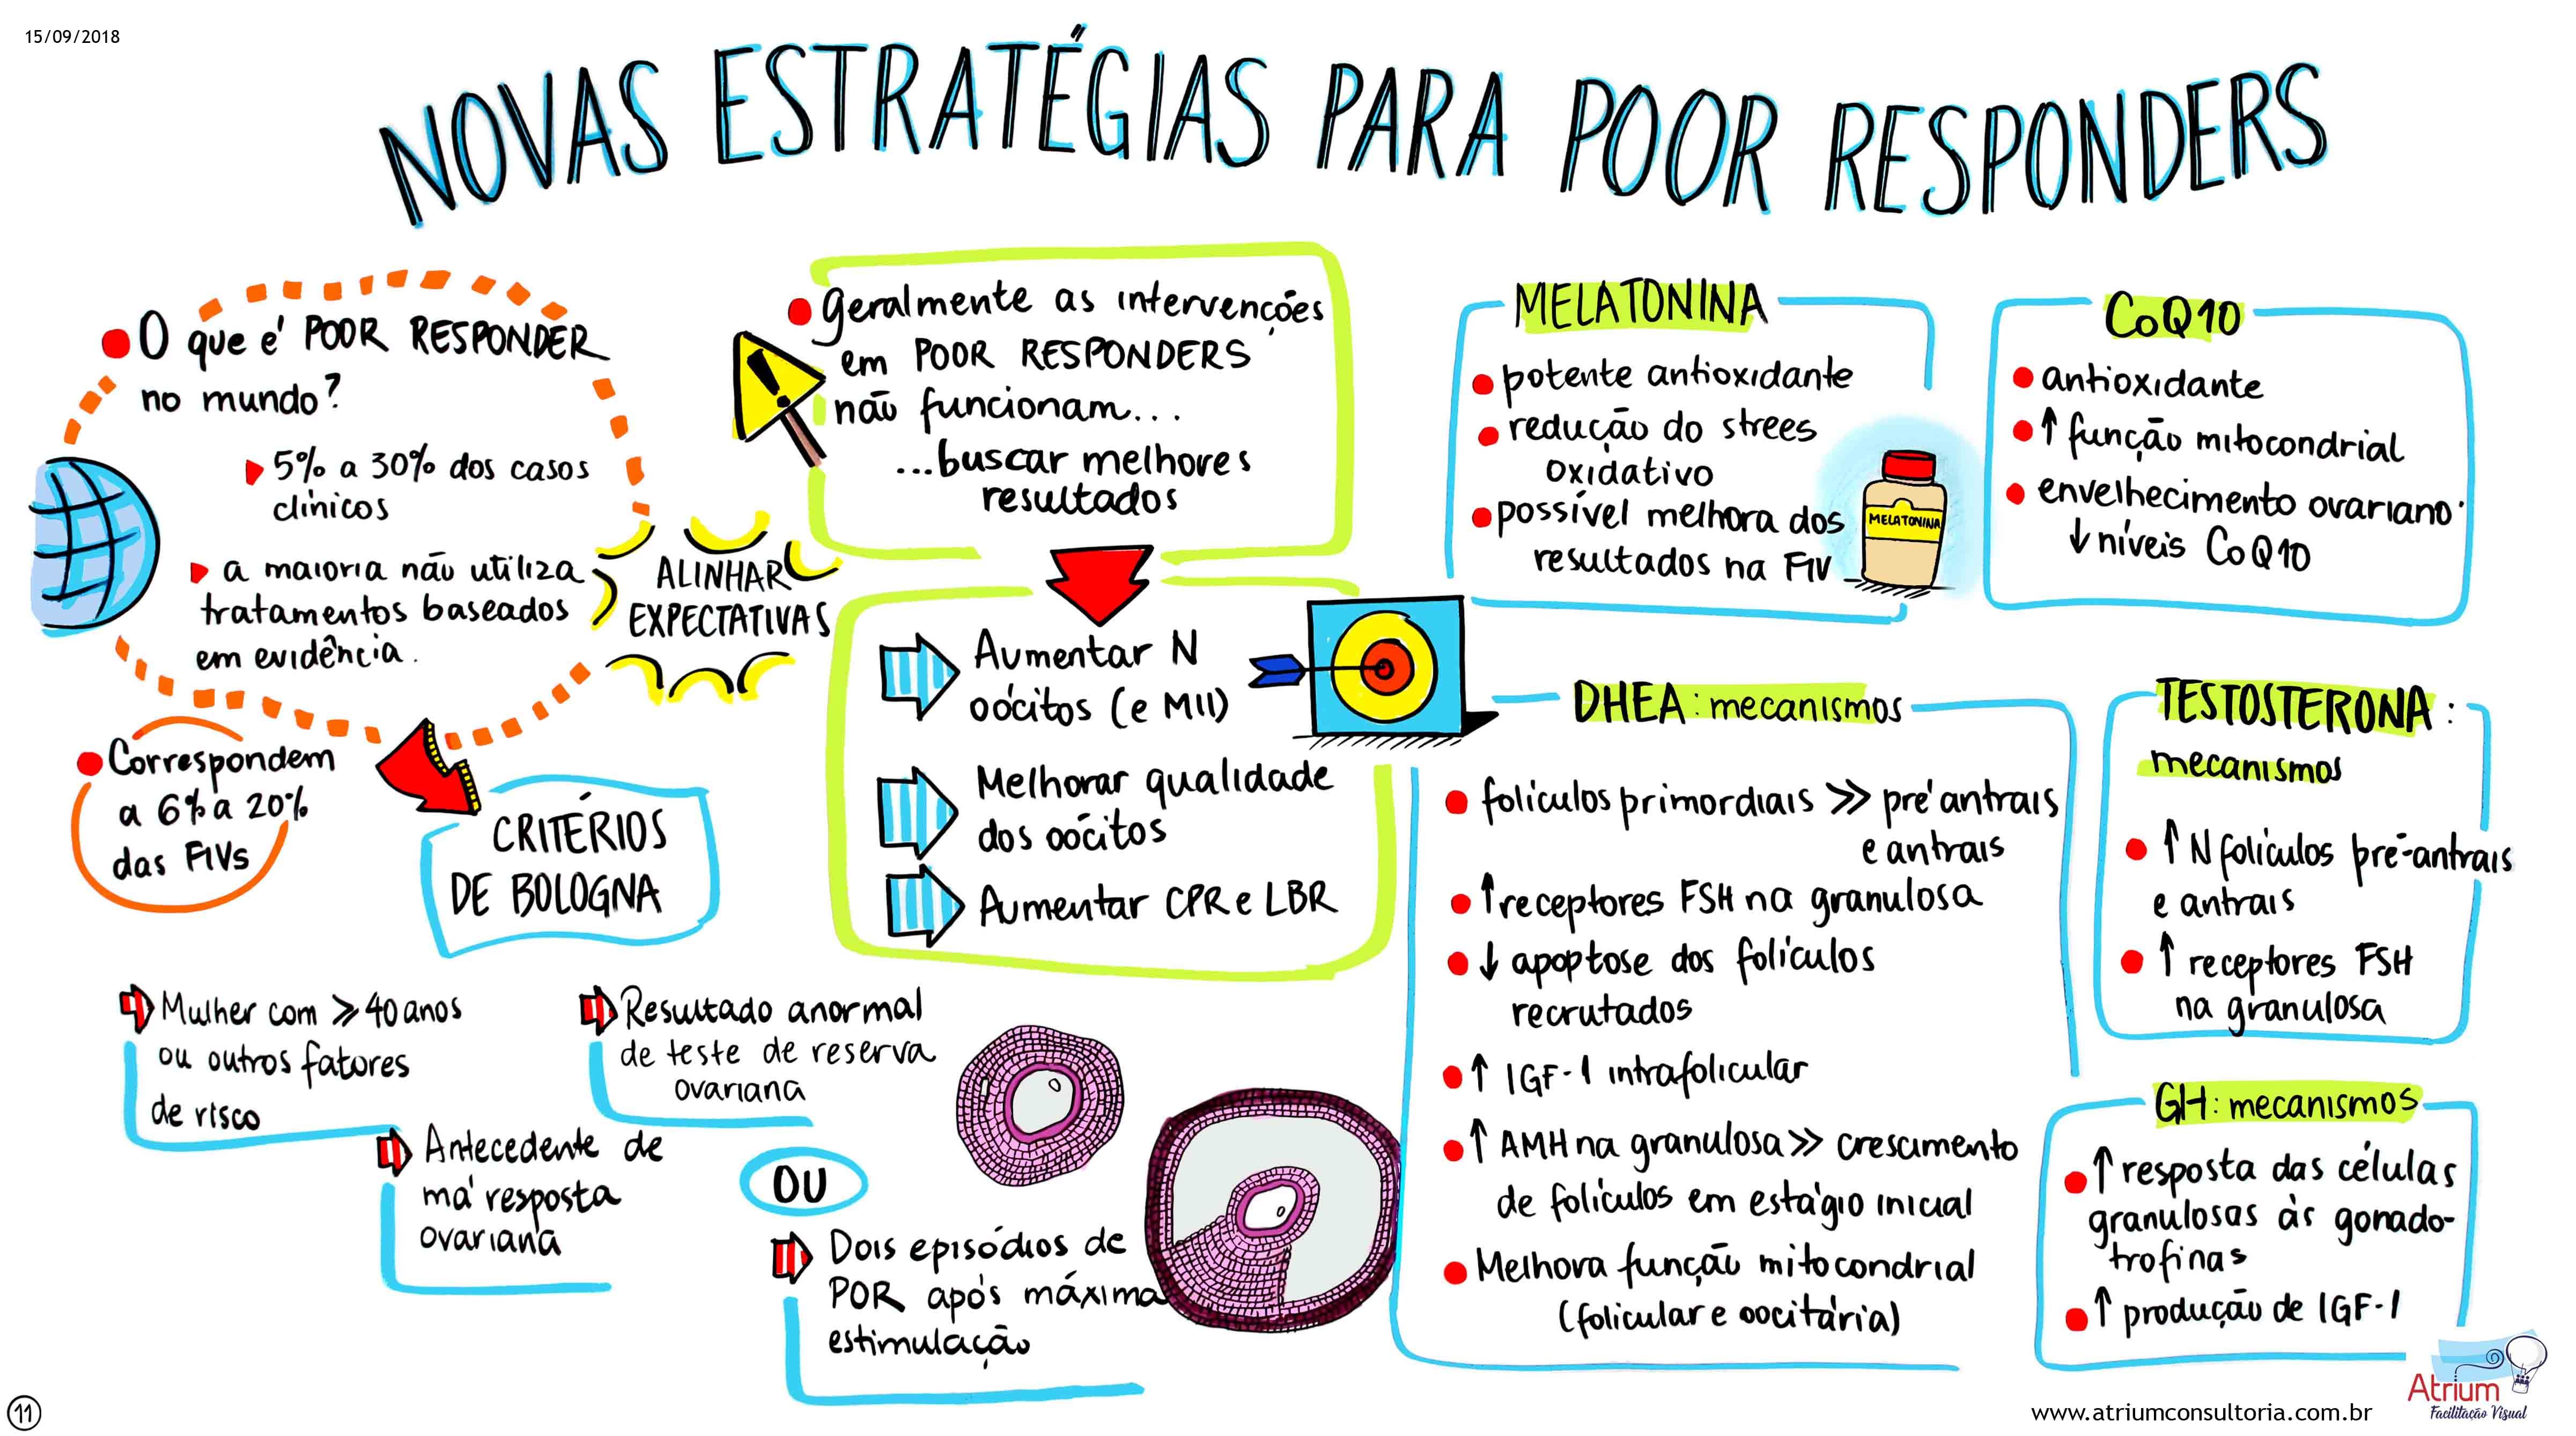 15/09/2018
NOVAS ESTRATÉGIAS PARA POOR RESPONDERS
O que é POOR RESPONDER
no mundo?
5% a 30% dos casos
clínicos
a maioria não utiliza
tratamentos baseados
em evidência.
ALINHAR
EXPECTATIVAS
Correspondem
a 6% a 20%
das FIVs
CRITÉRIOS
DE BOLOGNA
Mulher com ⩾ 40 anos
ou outros fatores
de risco
Antecedente de
má resposta
ovariana
Resultado anormal
de teste de reserva
ovariana
OU
Dois episódios de
POR após máxima
estimulação
geralmente as intervenções
em POOR RESPONDERS
não funcionam...
...buscar melhores
resultados
Aumentar N
oócitos (e MII)
Melhorar qualidade
dos oócitos
Aumentar CPR e LBR
MELATONINA
potente antioxidante
redução do strees
oxidativo
possível melhora dos
resultados na FIV
MELATONINA
CoQ10
antioxidante
↑ função mitocondrial
envelhecimento ovariano:
↓ níveis CoQ10
DHEA: mecanismos
folículos primordiais >> pré antrais
e antrais
↑ receptores FSH na granulosa
↓ apoptose dos folículos
recrutados
↑ IGF-1 intrafolicular
↑ AMH na granulosa >> crescimento
de folículos em estágio inicial
Melhora função mitocondrial
(folicular e oocitária)
TESTOSTERONA:
mecanismos
↑ N folículos pré-antrais
e antrais
↑ receptores FSH
na granulosa
GH: mecanismos
↑ resposta das células
granulosas às gonado-
trofinas
↑ produção de IGF-1
11
www.atriumconsultoria.com.br
Atrium
Facilitação Visual